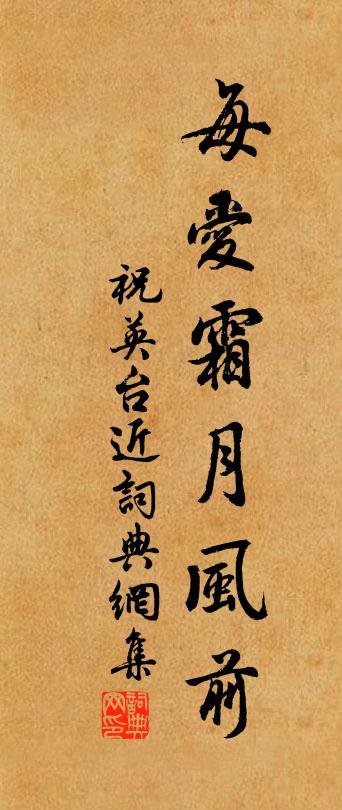 每愛霜月風前
祝英台近詞典網集
詞典網印